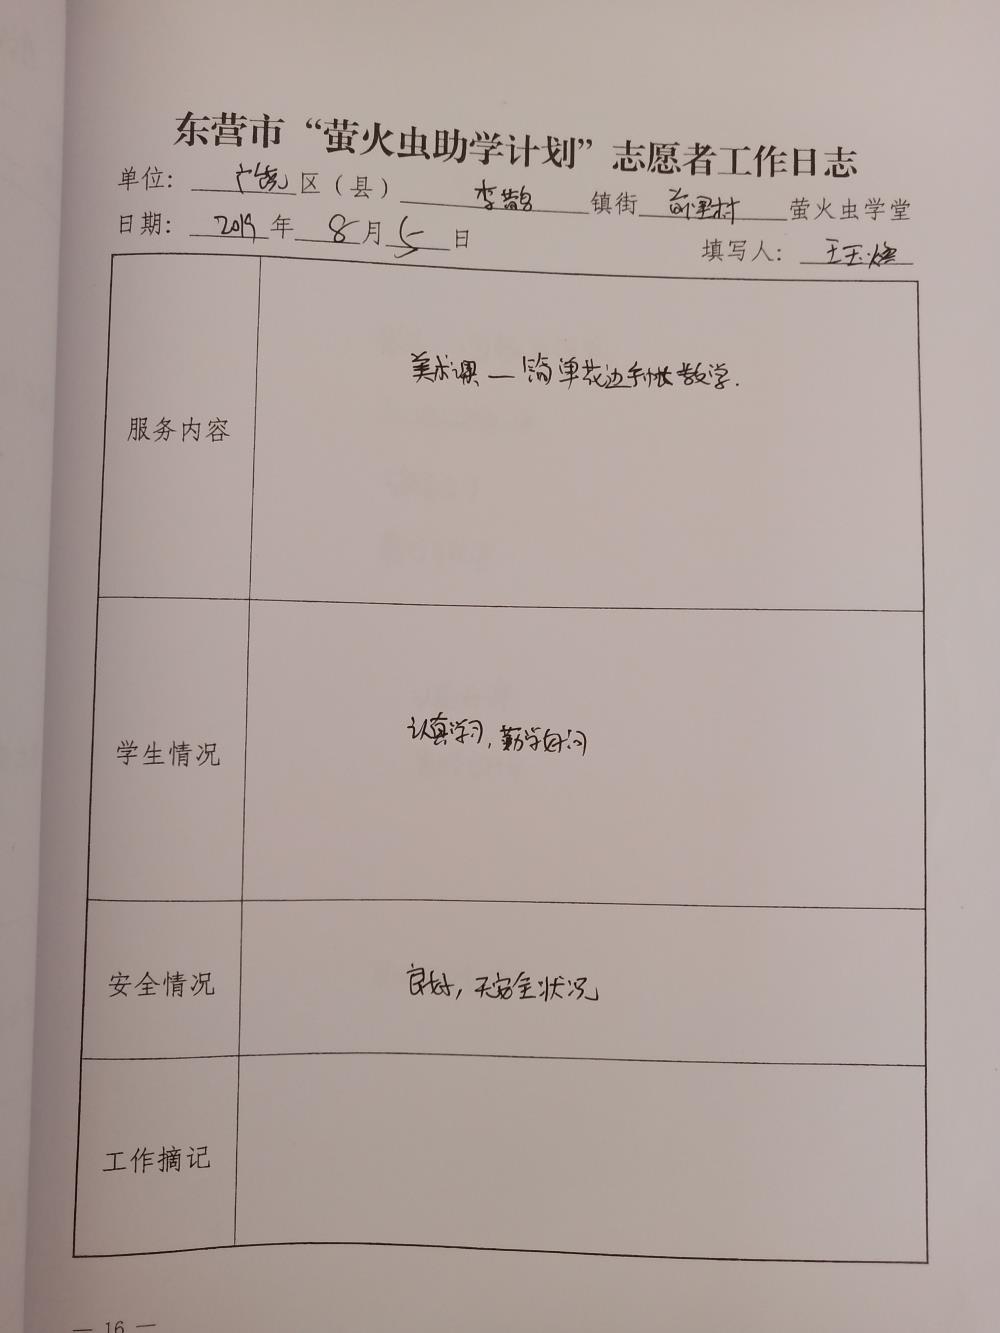 东营市“萤火虫助学计划”志愿者工作日志
单位：广饶区（县）李鹊镇街前里村萤火虫学堂
日期：2019年8月5日 填写人：王玉
服务内容 美术课—简单花边手帐教学.
学生情况 认真学习，勤学好问
安全情况 良好，无安全状况
工作摘记
— 16 —